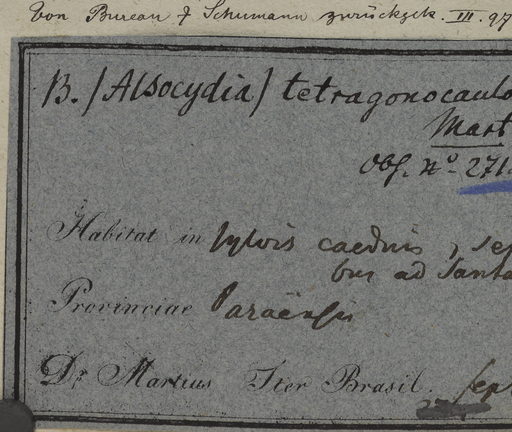 Von Bureau & Schumann zurückgek. III. 97
B. [Alsocydia] tetragonocaulo
Mart
Obs. No. 271.
Habitat in sylvis caeduis, sep
bus ad Santa
Provinciae Paraënsis
Dr. Martius Iter Brasil. Sept